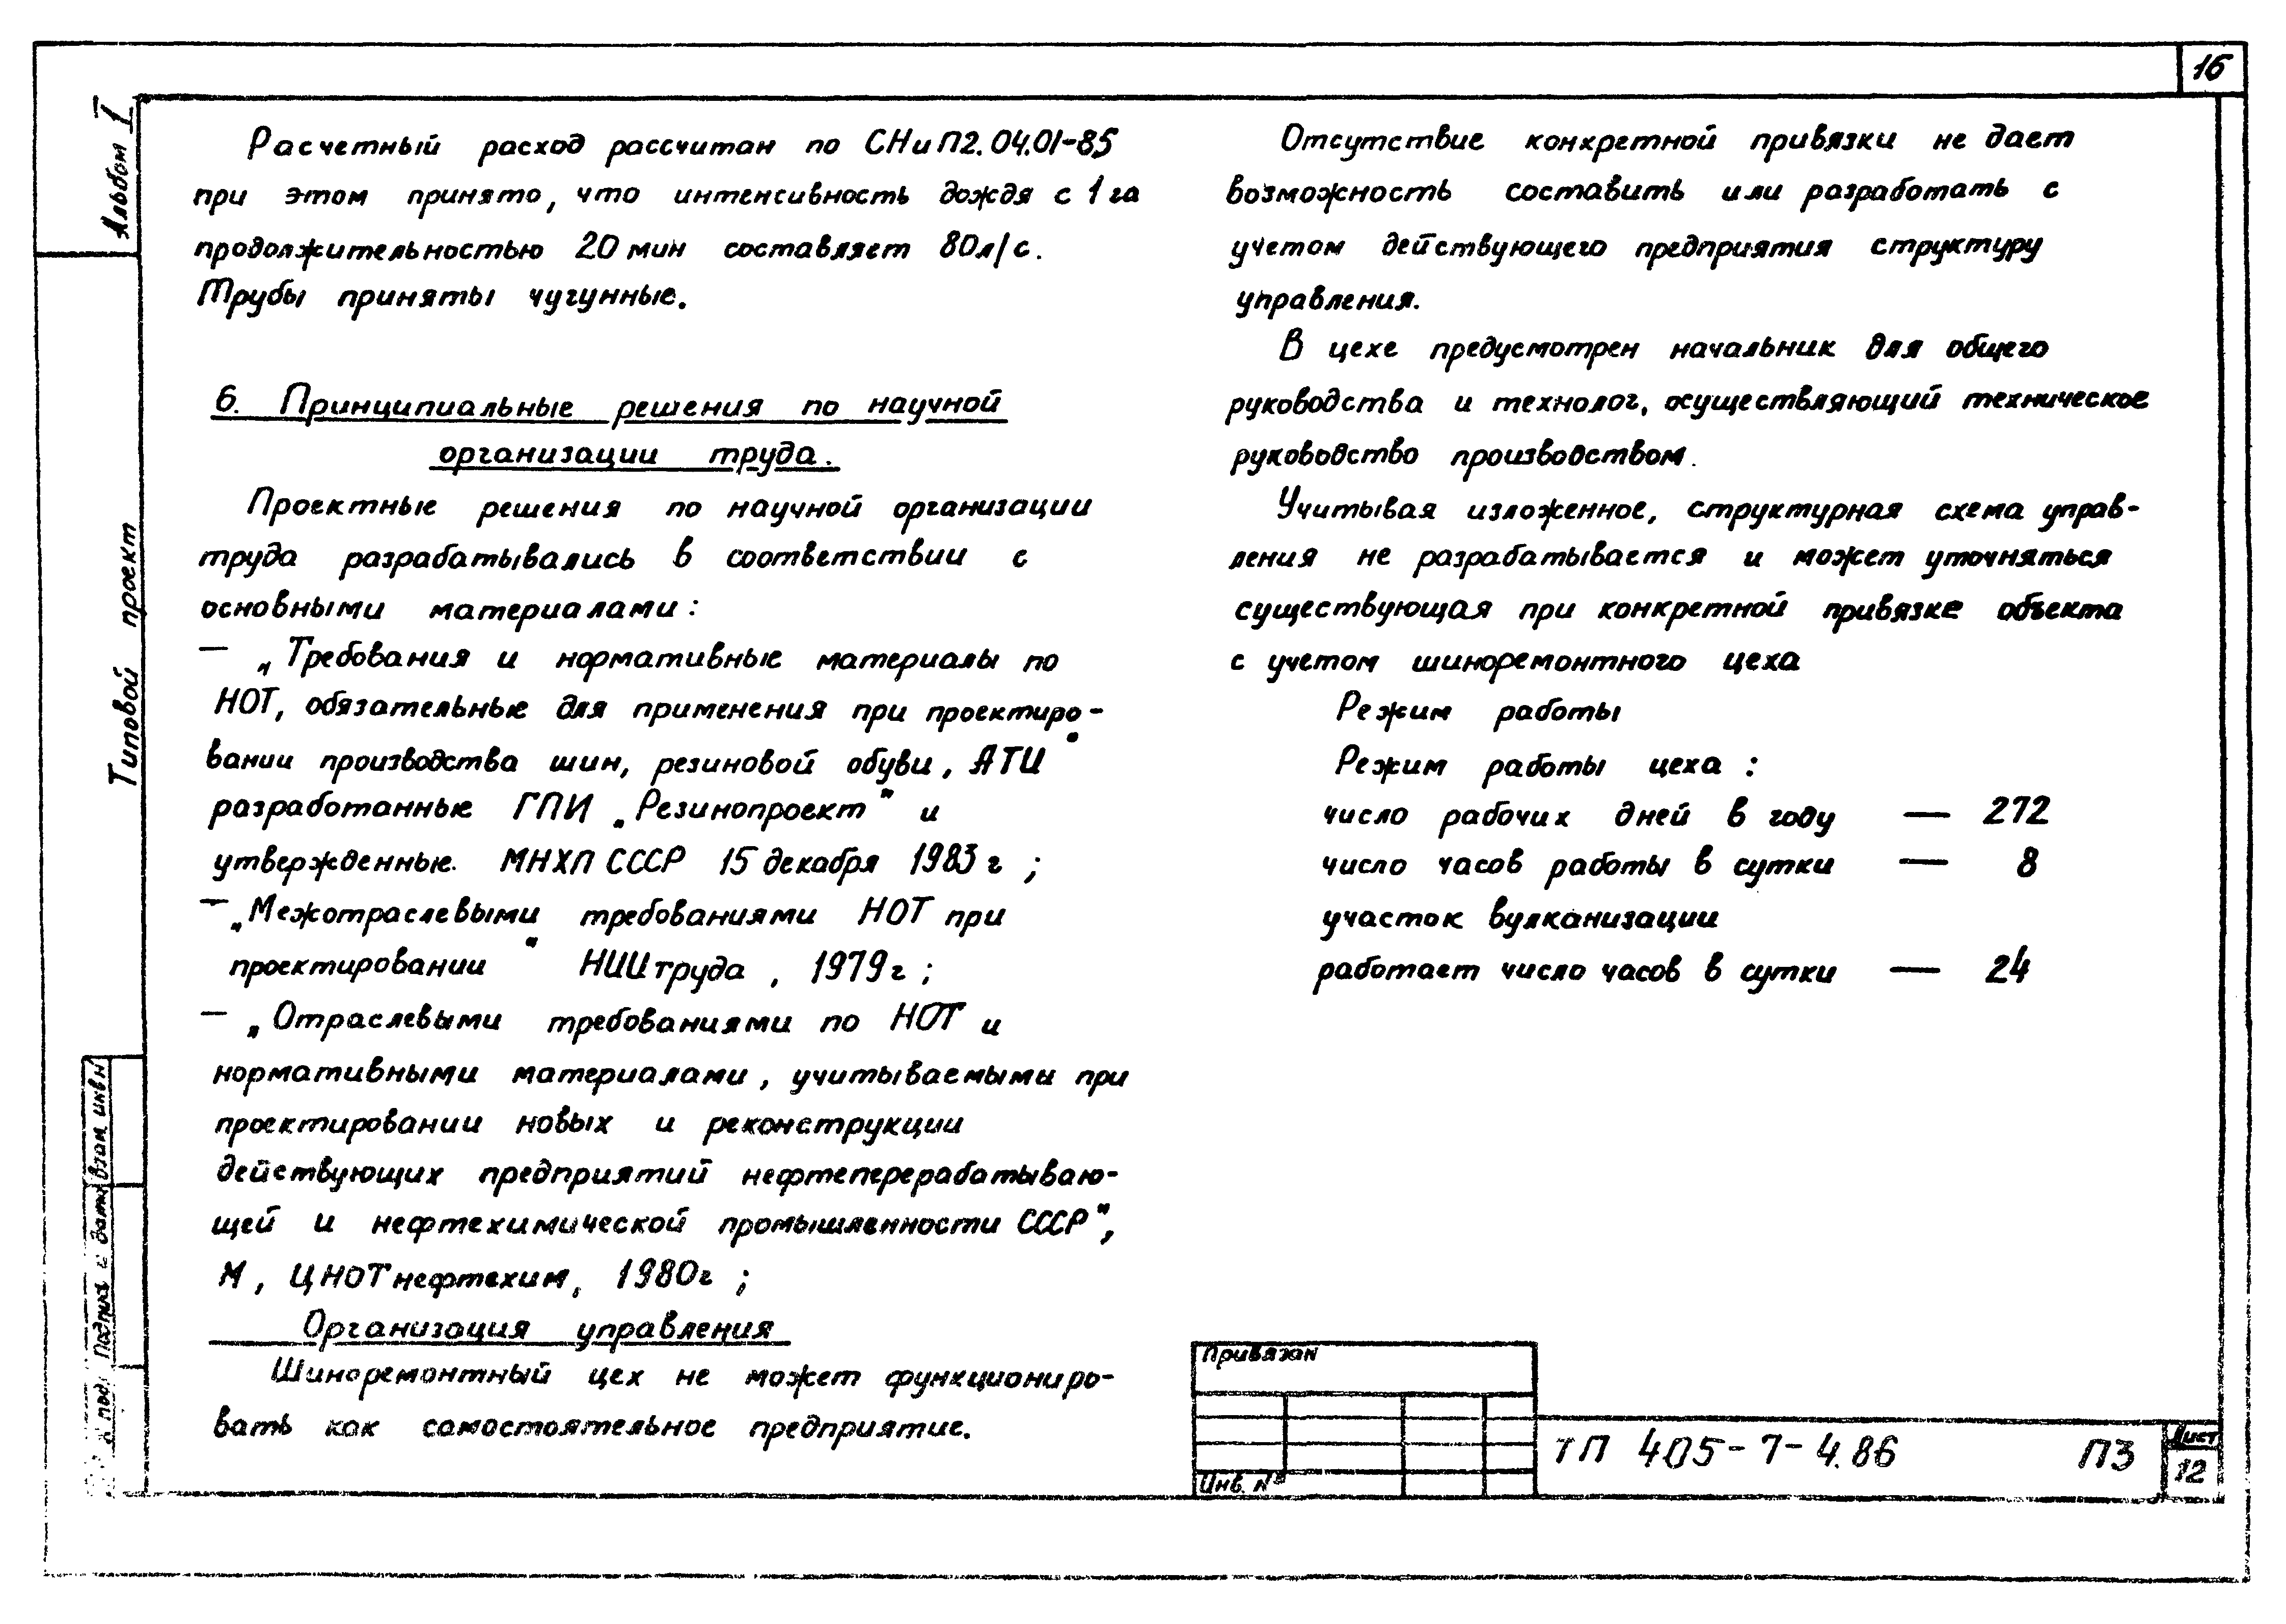 16
Альбом I
Типовой проект
Расчетный расход рассчитан по СНиП2.04.01-85
при этом принято, что интенсивность дождя с 1 га
продолжительностью 20 мин составляет 80л/с.
Трубы приняты чугунные.
6. Принципиальные решения по научной
организации труда.
Проектные решения по научной организации
труда разрабатывались в соответствии с
основными материалами:
— „Требования и нормативные материалы по
НОТ, обязательные для применения при проектиро-
вании производства шин, резиновой обуви, АТИ"
разработанные ГПИ „Резинопроект" и
утвержденные. МНХП СССР 15 декабря 1983 г ;
— „Межотраслевыми требованиями НОТ при
проектировании" НИИтруда , 1979г ;
— „Отраслевыми требованиями по НОТ и
нормативными материалами, учитываемыми при
проектировании новых и реконструкции
действующих предприятий нефтеперерабатываю-
щей и нефтехимической промышленности СССР",
М, ЦНОТнефтехим, 1980г ;
Организация управления
Шиноремонтный цех не может функциониро-
вать как самостоятельное предприятие.
Отсутствие конкретной привязки не дает
возможность составить или разработать с
учетом действующего предприятия структуру
управления.
В цехе предусмотрен начальник для общего
руководства и технолог, осуществляющий техническое
руководство производством.
Учитывая изложенное, структурная схема управ-
ления не разрабатывается и может уточняться
существующая при конкретной привязке объекта
с учетом шиноремонтного цеха
Режим работы
Режим работы цеха :
число рабочих дней в году — 272
число часов работы в сутки — 8
участок вулканизации
работает число часов в сутки — 24
Взам инв N
Подпись и дата
под.
Привязан
Инв. №
ТП 405-7-4.86 ПЗ
Лист
12